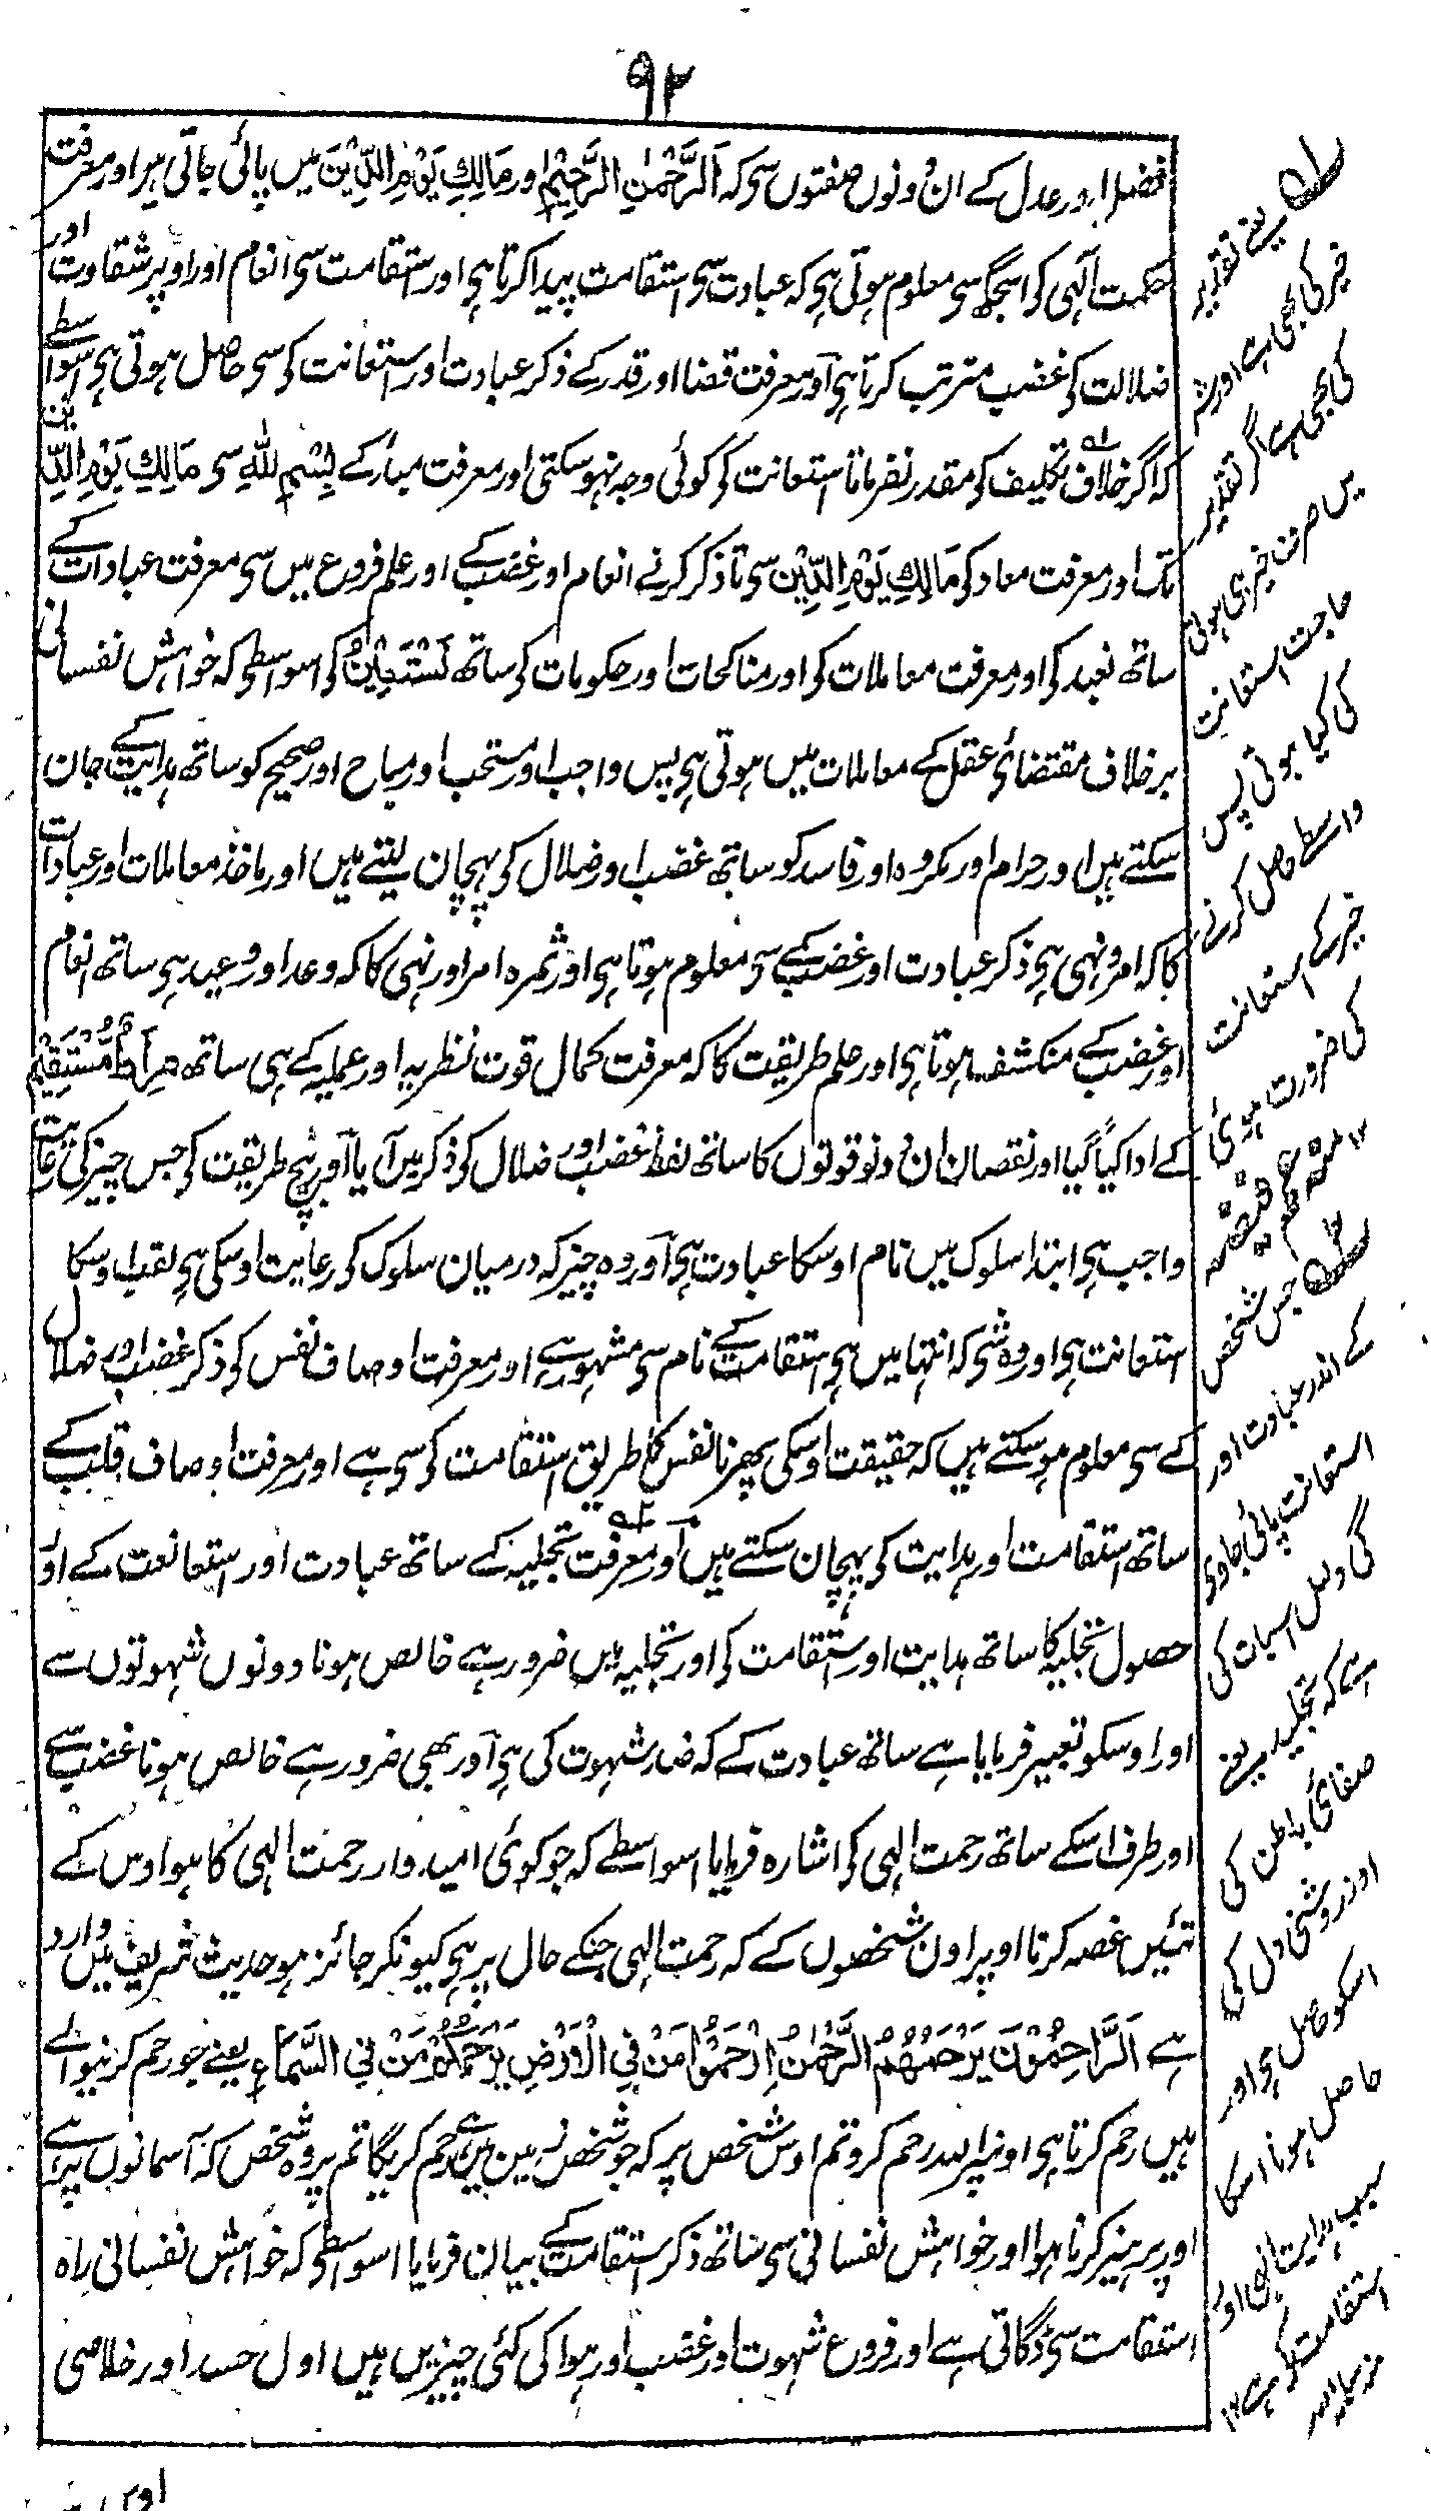 ۹۲
فضل اور عدل کے ان دونوں صفتوں سی کہ اَلرَّحْمٰنِ الرَّحِیْمِ اور مَالِكِ یَوْمِ الدِّیْنَ میں پائی جاتی ہیں اور معرفت
حکمت الٰہی کو اسجگہ سی معلوم ہوتی ہی کہ عبادت سی استقامت پیدا کرتا ہی اور استقامت سی انعام اور اوپر شقاوت اور
ضلالت کی غضب مترتب کرتا ہی آور معرفت قضا اور قدر کے ذکر عبادت اور استعانت کو سی حاصل ہوتی ہی اسواسطے
کہ اگر خلاف تکلیف کو مقدر نفرماتا استعانت کو کوئی وجہ نہو سکتی اور معرفت مبدأ کے بِسْمِ للّٰهِ سی مَالِكِ یَوْمِ الدِّیْن
تک اور معرفت معاد کو مَالِكِ یَوْمِ الدِّیْن سی تا ذکر کرنے انعام اور غضب کے اور علم فروع میں سی معرفت عبادات کے
ساتھ نعبد کو اور معرفت معاملات کو اور مناکحات اور حکومات کو ساتھ نَسْتَعِیْنُ کو اسواسطی کہ خواہش نفسانی
برخلاف مقتضائ عقل کے معاملات میں ہوتی ہی پس واجب اور مستحب اور مباح اور صحیح کو ساتھ ہدایت کے جان
سکتے ہیں اور حرام اور مکروہ اور فاسد کو ساتھ غضب اور ضلال کی پہچان لیتے ہیں اور ماخذ معاملات اور عبادات
کا کہ امر و نہی ہی ذکر عبادت اور غضب کے سی معلوم ہوتا ہی اور ثمرہ امر اور نہی کا کہ وعد اور وعید ہی ساتھ انعام
اور غضب کے منکشف ہوتا ہی اور علم طریقت کا کہ معرفت کمال قوت نظریہ اور عملیہ کے ہی ساتھ صِرَاطٌ مُّسْتَقِیْمٌ
کے ادا کیا گیا اور نقصان ان دونو قوتوں کا ساتھ لفظ غضب اور ضلال کو ذکر میں آیا آور بیچ طریقت کو جس چیز کی رعایت
واجب ہی ابتدا سلوک میں نام اوسکا عبادت ہی آور وہ چیز کہ درمیان سلوک کو رعایت اوسکی ہی لقب اوسکا
استعانت ہی اور وہ شی کہ انتہا میں ہی استقامت کے نام سی مشہور ہے اور معرفت اوصاف نفس کو ذکر غضب اور ضلال
کے سی معلوم ہو سکتے ہیں کہ حقیقت اوسکی پھرنا نفس کا طریق استقامت کو سی ہے اور معرفت اوصاف قلب کے
ساتھ استقامت اور ہدایت کی پہچان سکتے ہیں آور معرفت تجلیہ کے ساتھ عبادت اور استعانت کے اور
حصول تجلیہ کا ساتھ ہدایت اور استقامت کو اور تجلیہ میں ضرور ہے خالص ہونا دونوں شہوتوں سے
اور اوسکو تعبیر فرمایا ہے ساتھ عبادت کے کہ ضد شہوت کی ہی آور بھی ضرور ہے خالص ہونا غضب سے
اور طرف اسکے ساتھ رحمت الٰہی کو اشارہ فرمایا اسواسطے کہ جو کوئی امیدوار رحمت الٰہی کا ہو اوس کے
تئیں غصہ کرنا اوپر اون شخصوں کے کہ رحمت الٰہی جنکے حال پر ہی کیونکر جائز ہو حدیث شریف میں وارد
ہے اَلرَّاحِمُوْنَ یَرْحَمُهُمُ الرَّحْمٰنُ اِرْحَمُوْا مَنْ فِی الْاَرْضِ یَرْحَمُكُمْ مَنْ فِی السَّمَاءِ یعنے جو رحم کرنیوالے
ہیں رحم کرتا ہی اونپر اللہ رحم کرو تم اوس شخص پر کہ جو شخص زمین میں ہے رحم کریگا تم پر وہ شخص کہ آسمانوں پر ہے
اور پرہیز کرنا ہوا اور خواہش نفسانی سی ساتھ ذکر استقامت کے بیان فرمایا اسواسطی کہ خواہش نفسانی راہ
استقامت سی ڈگاتی ہے اور فروع شہوت اور غضب اور ہوا کی کئی چیزیں ہیں اول حسد اور خلاصی
یعنے تقدیر
خیر کی بھی ہے اور شر
کی بھی ہے اگر تقدیر
میں صرف خیر ہی ہوتی
حاجت استعانت
کی کیا ہوتی پس
واسطے حاصل کرنے
خیر کے استعانت
کی ضرورت ہوئی
جس شخص
کے اندر عبادت اور
استعانت پائی جاوی
گی دلیل اسبات کی
ہے کہ تجلیہ یعنے
صفائی باطن کی
اور روشنی دل کی
اسکو حاصل ہی اور
حاصل ہونا اسکا
سبب ہدایت اور
استقامت کو ہے ۱۲